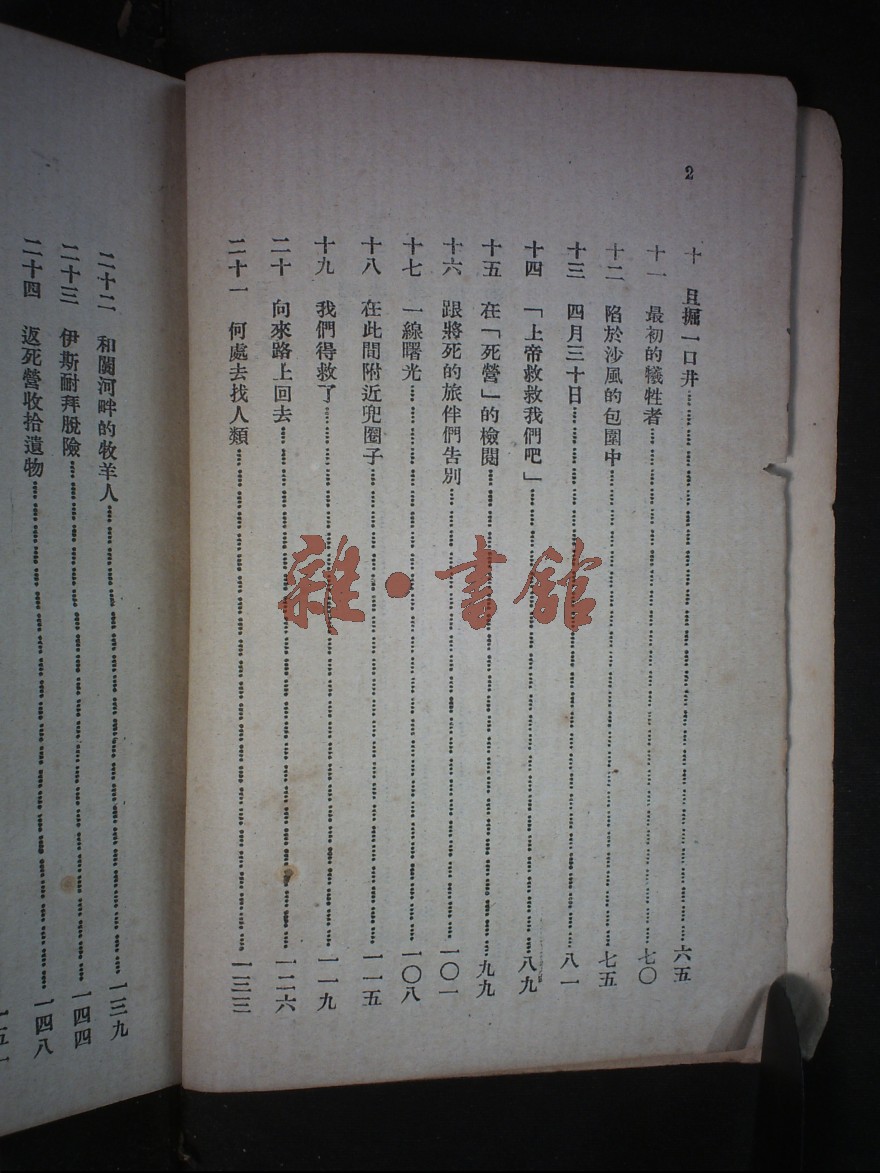 2
十　且掘一口井…………六五
十一　最初的犧牲者…………七〇
十二　陷於沙風的包圍中…………七五
十三　四月三十日…………八一
十四　「上帝救救我們吧」…………八九
十五　在「死營」的檢閱…………九九
十六　跟將死的旅伴們告別…………一〇一
十七　一線曙光…………一〇八
十八　在此間附近兜圈子…………一一五
十九　我們得救了…………一一九
二十　向來路上回去…………一二六
二十一　何處去找人類…………一三三
二十二　和闐河畔的牧羊人…………一三九
二十三　伊斯耐拜脫險…………一四四
二十四　返死營收拾遺物…………一四八
雜·書館